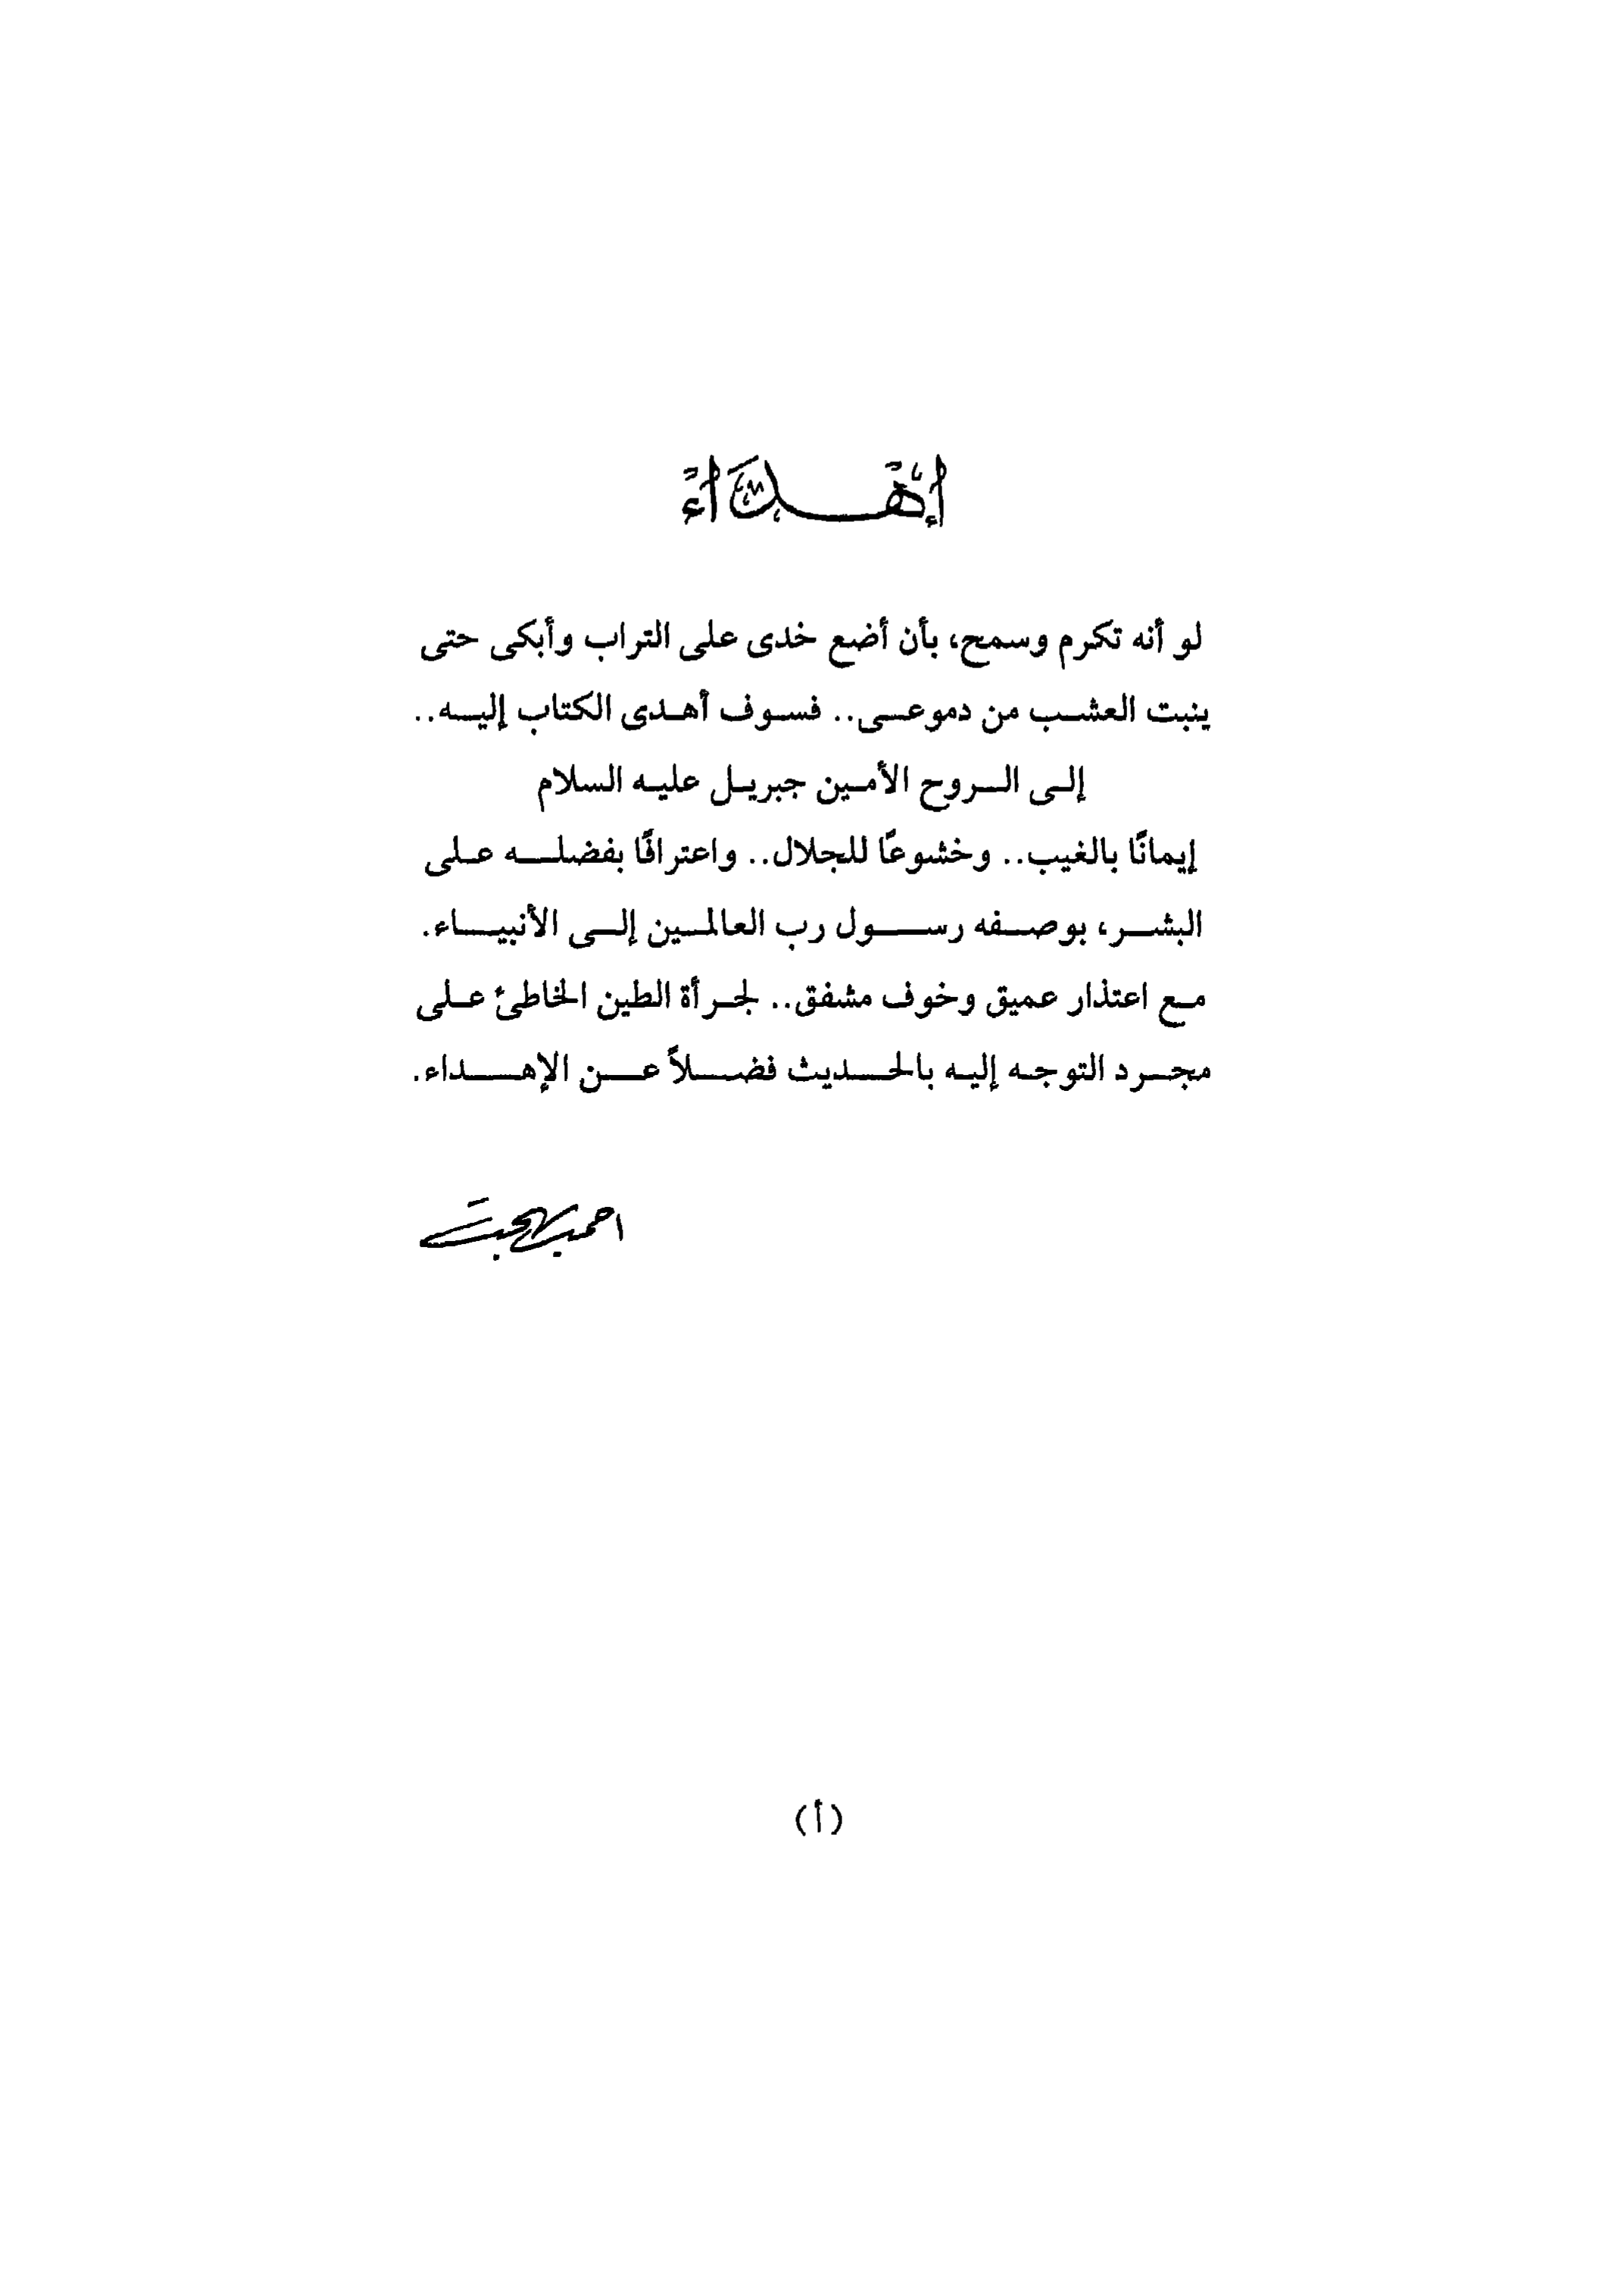 إهداء
لو أنه تكرم وسمح، بأن أضع خدى على التراب وأبكى حتى
ينبت العشب من دموعى.. فسوف أهدى الكتاب إليه..
إلى الروح الأمين جبريل عليه السلام
إيمانًا بالغيب.. وخشوعًا للجلال.. واعترافًا بفضله على
البشر، بوصفه رسول رب العالمين إلى الأنبياء.
مع اعتذار عميق وخوف مشفق.. لجرأة الطين الخاطئ على
مجرد التوجه إليه بالحديث فضلاً عن الإهداء.
احمد بهجت
(أ)